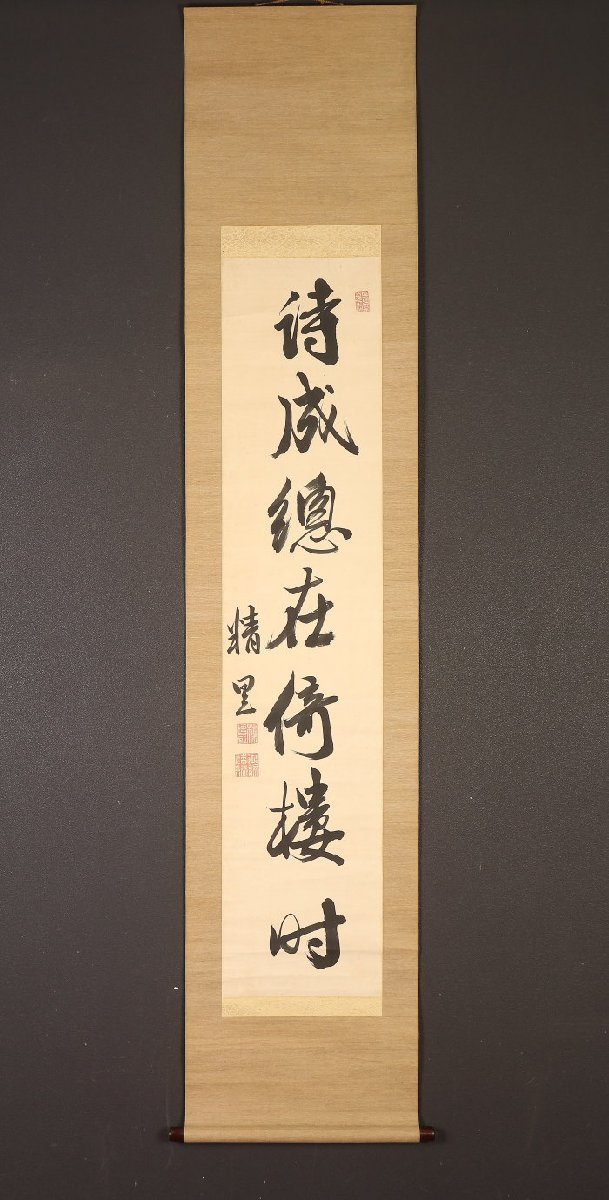 詩成總在倚樓时
精里